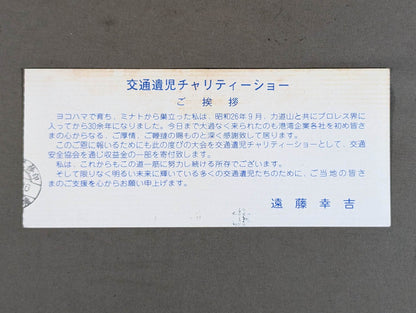 交通遺児チャリティーショー
ご挨拶
ヨコハマで育ち、ミナトから巣立った私は、昭和26年9月、力道山と共にプロレス界に
入ってから30余年になりました。今日まで大過なく来られたのも港湾企業各社を初め皆さ
まの心からなる、ご厚情、ご鞭撻の賜ものと深く感謝致して居ります。
このご恩に報いるためにも此の度びの大会を交通遺児チャリティーショーとして、交通
安全協会を通じ収益金の一部を寄付致します。
私は、これからもこの道一筋に努力し続ける所存でございます。
そして限りなく明るい未来に輝いている多くの交通遺児たちのために、ご当地の皆さ
まのご支援を心からお願い申上げます。
遠藤幸吉